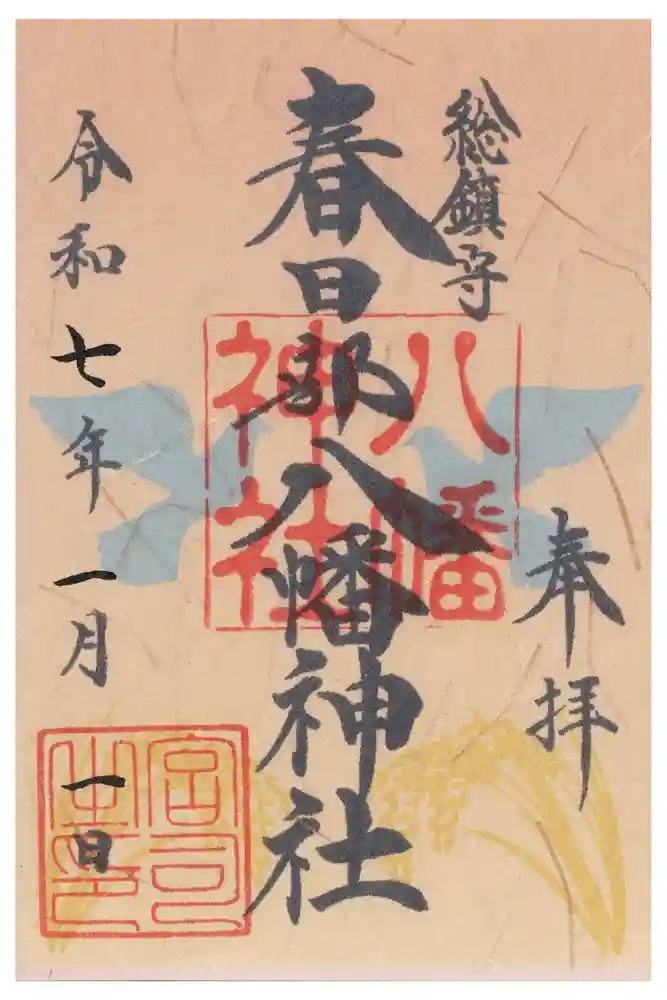 奉拝
総鎮守
春日部八幡神社
八幡
神社
令和七年一月一日
宮司
之印